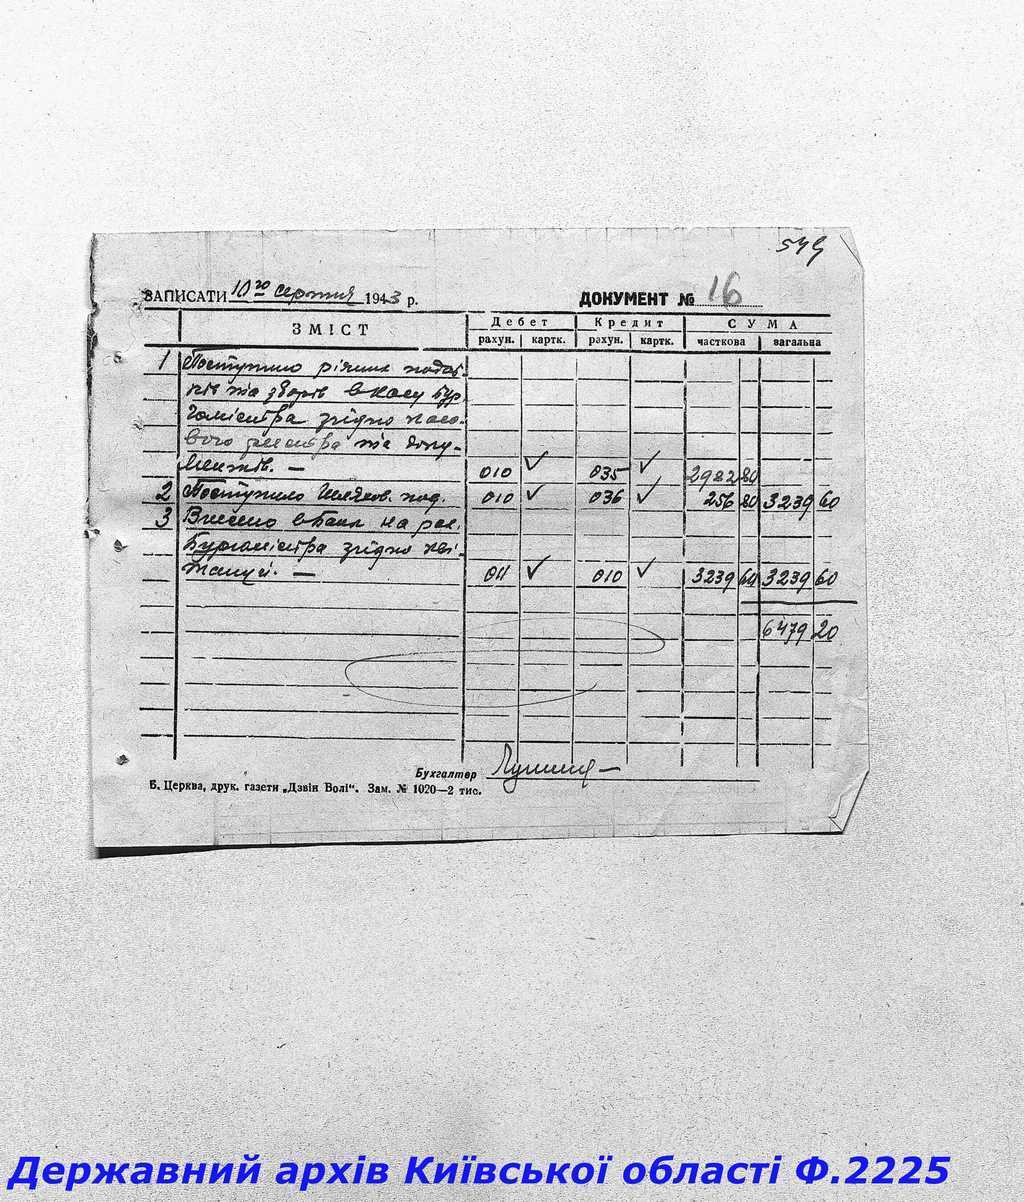 549
ЗАПИСАТИ 10го серпня 1943 р. ДОКУМЕНТ № 16
ЗМІСТ Дебет Кредит СУМА
рахун. картк. рахун. картк. часткова загальна
1 Поступило різних подат-
ків та зборів в касу Бур
гомістра згідно касо-
вого реєстра та доку-
ментів. — 010 ✓ 035 ✓ 2982 80
2 Поступило Шляхов. под. 010 ✓ 036 ✓ 256 80 3239 60
3 Внесено в Банк на рах.
Бургомістра згідно кві-
танції. — 011 ✓ 010 ✓ 3239 60 3239 60
6479 20
Бухгалтер
Б. Церква, друк. газети „Дзвін Волі“. Зам. № 1020—2 тис.
Державний архів Київської області Ф.2225